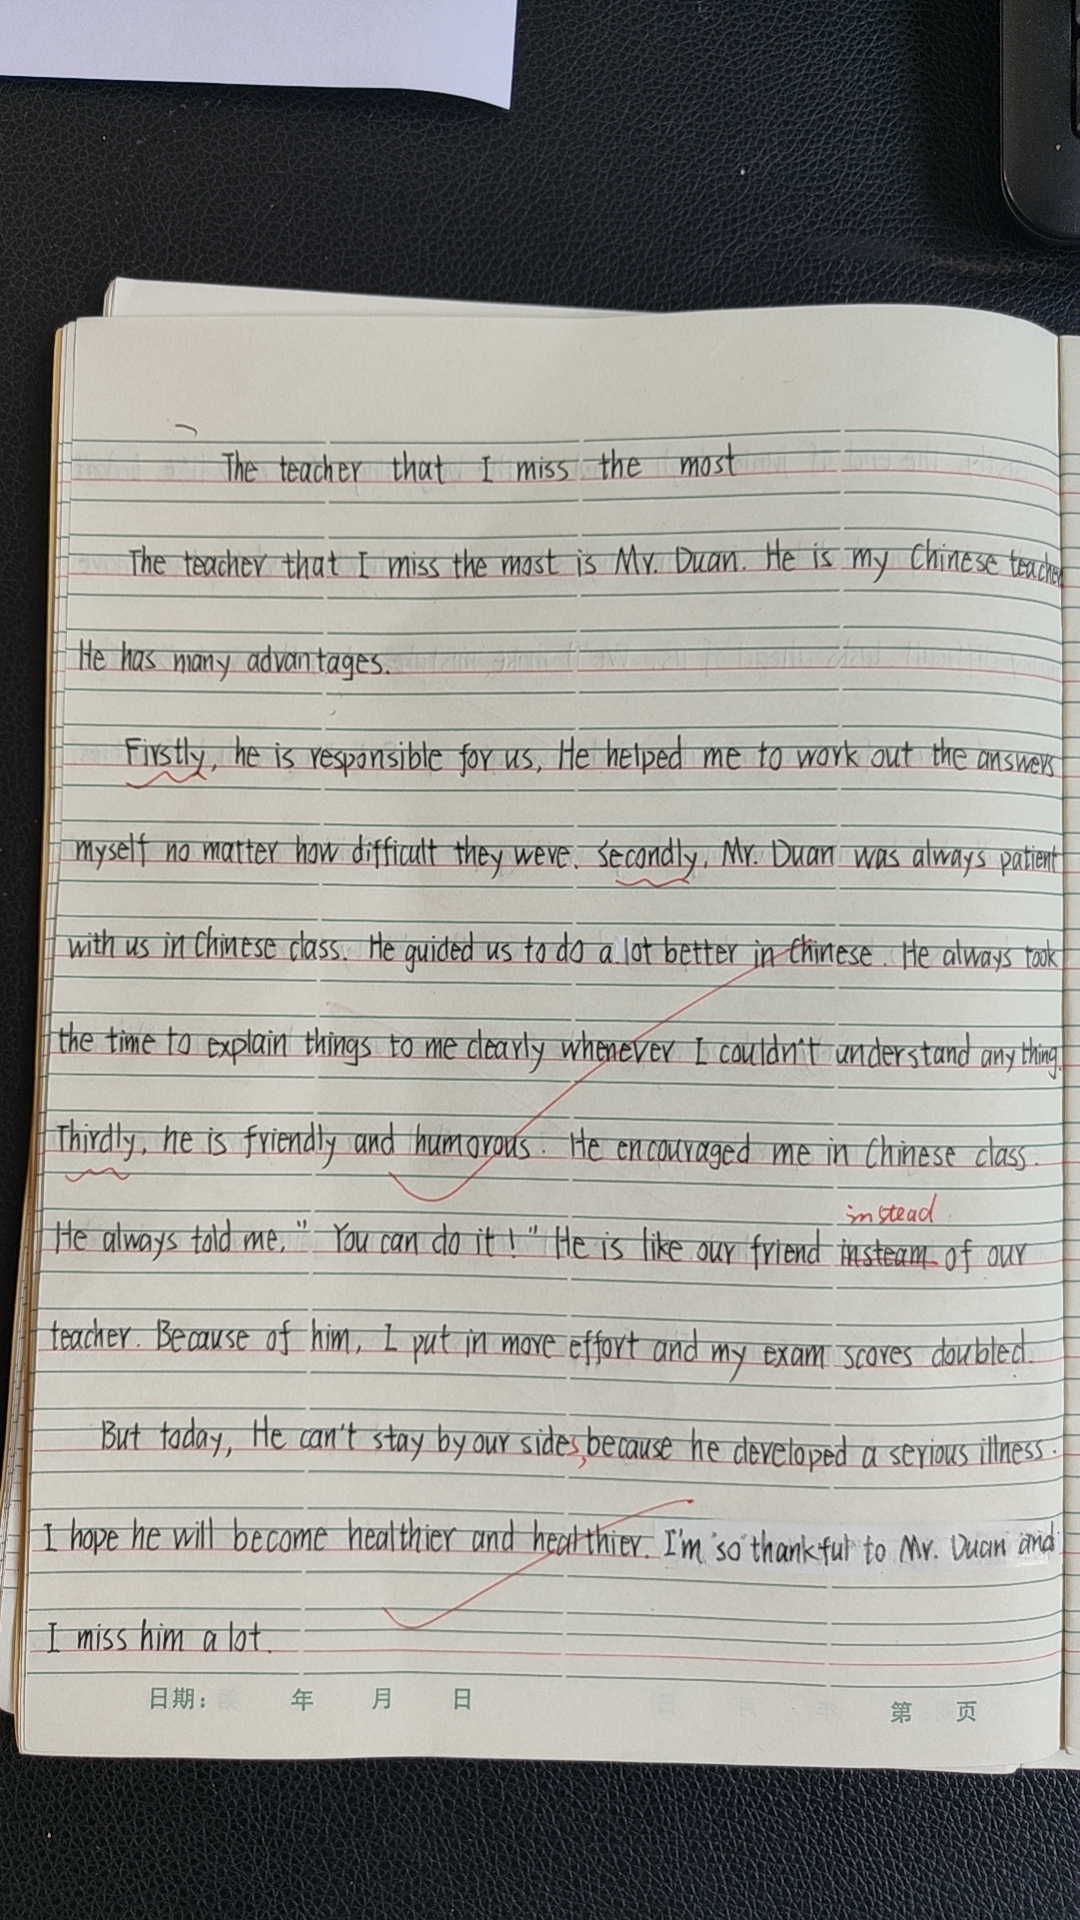 The teacher that I miss the most
The teacher that I miss the most is Mr. Duan. He is my Chinese teacher
He has many advantages.
Firstly, he is responsible for us, He helped me to work out the answers
myself no matter how difficult they were. Secondly, Mr. Duan was always patient
with us in Chinese class. He guided us to do a lot better in Chinese. He always took
the time to explain things to me clearly whenever I couldn't understand any thing.
Thirdly, he is friendly and humorous. He encouraged me in Chinese class.
instead
He always told me, " You can do it ! " He is like our friend insteam of our
teacher. Because of him, I put in more effort and my exam scores doubled.
But today, He can't stay by our sides, because he developed a serious illness.
I hope he will become healthier and healthier. I'm so thankful to Mr. Duan and
I miss him a lot.
日期: 年 月 日
第 页